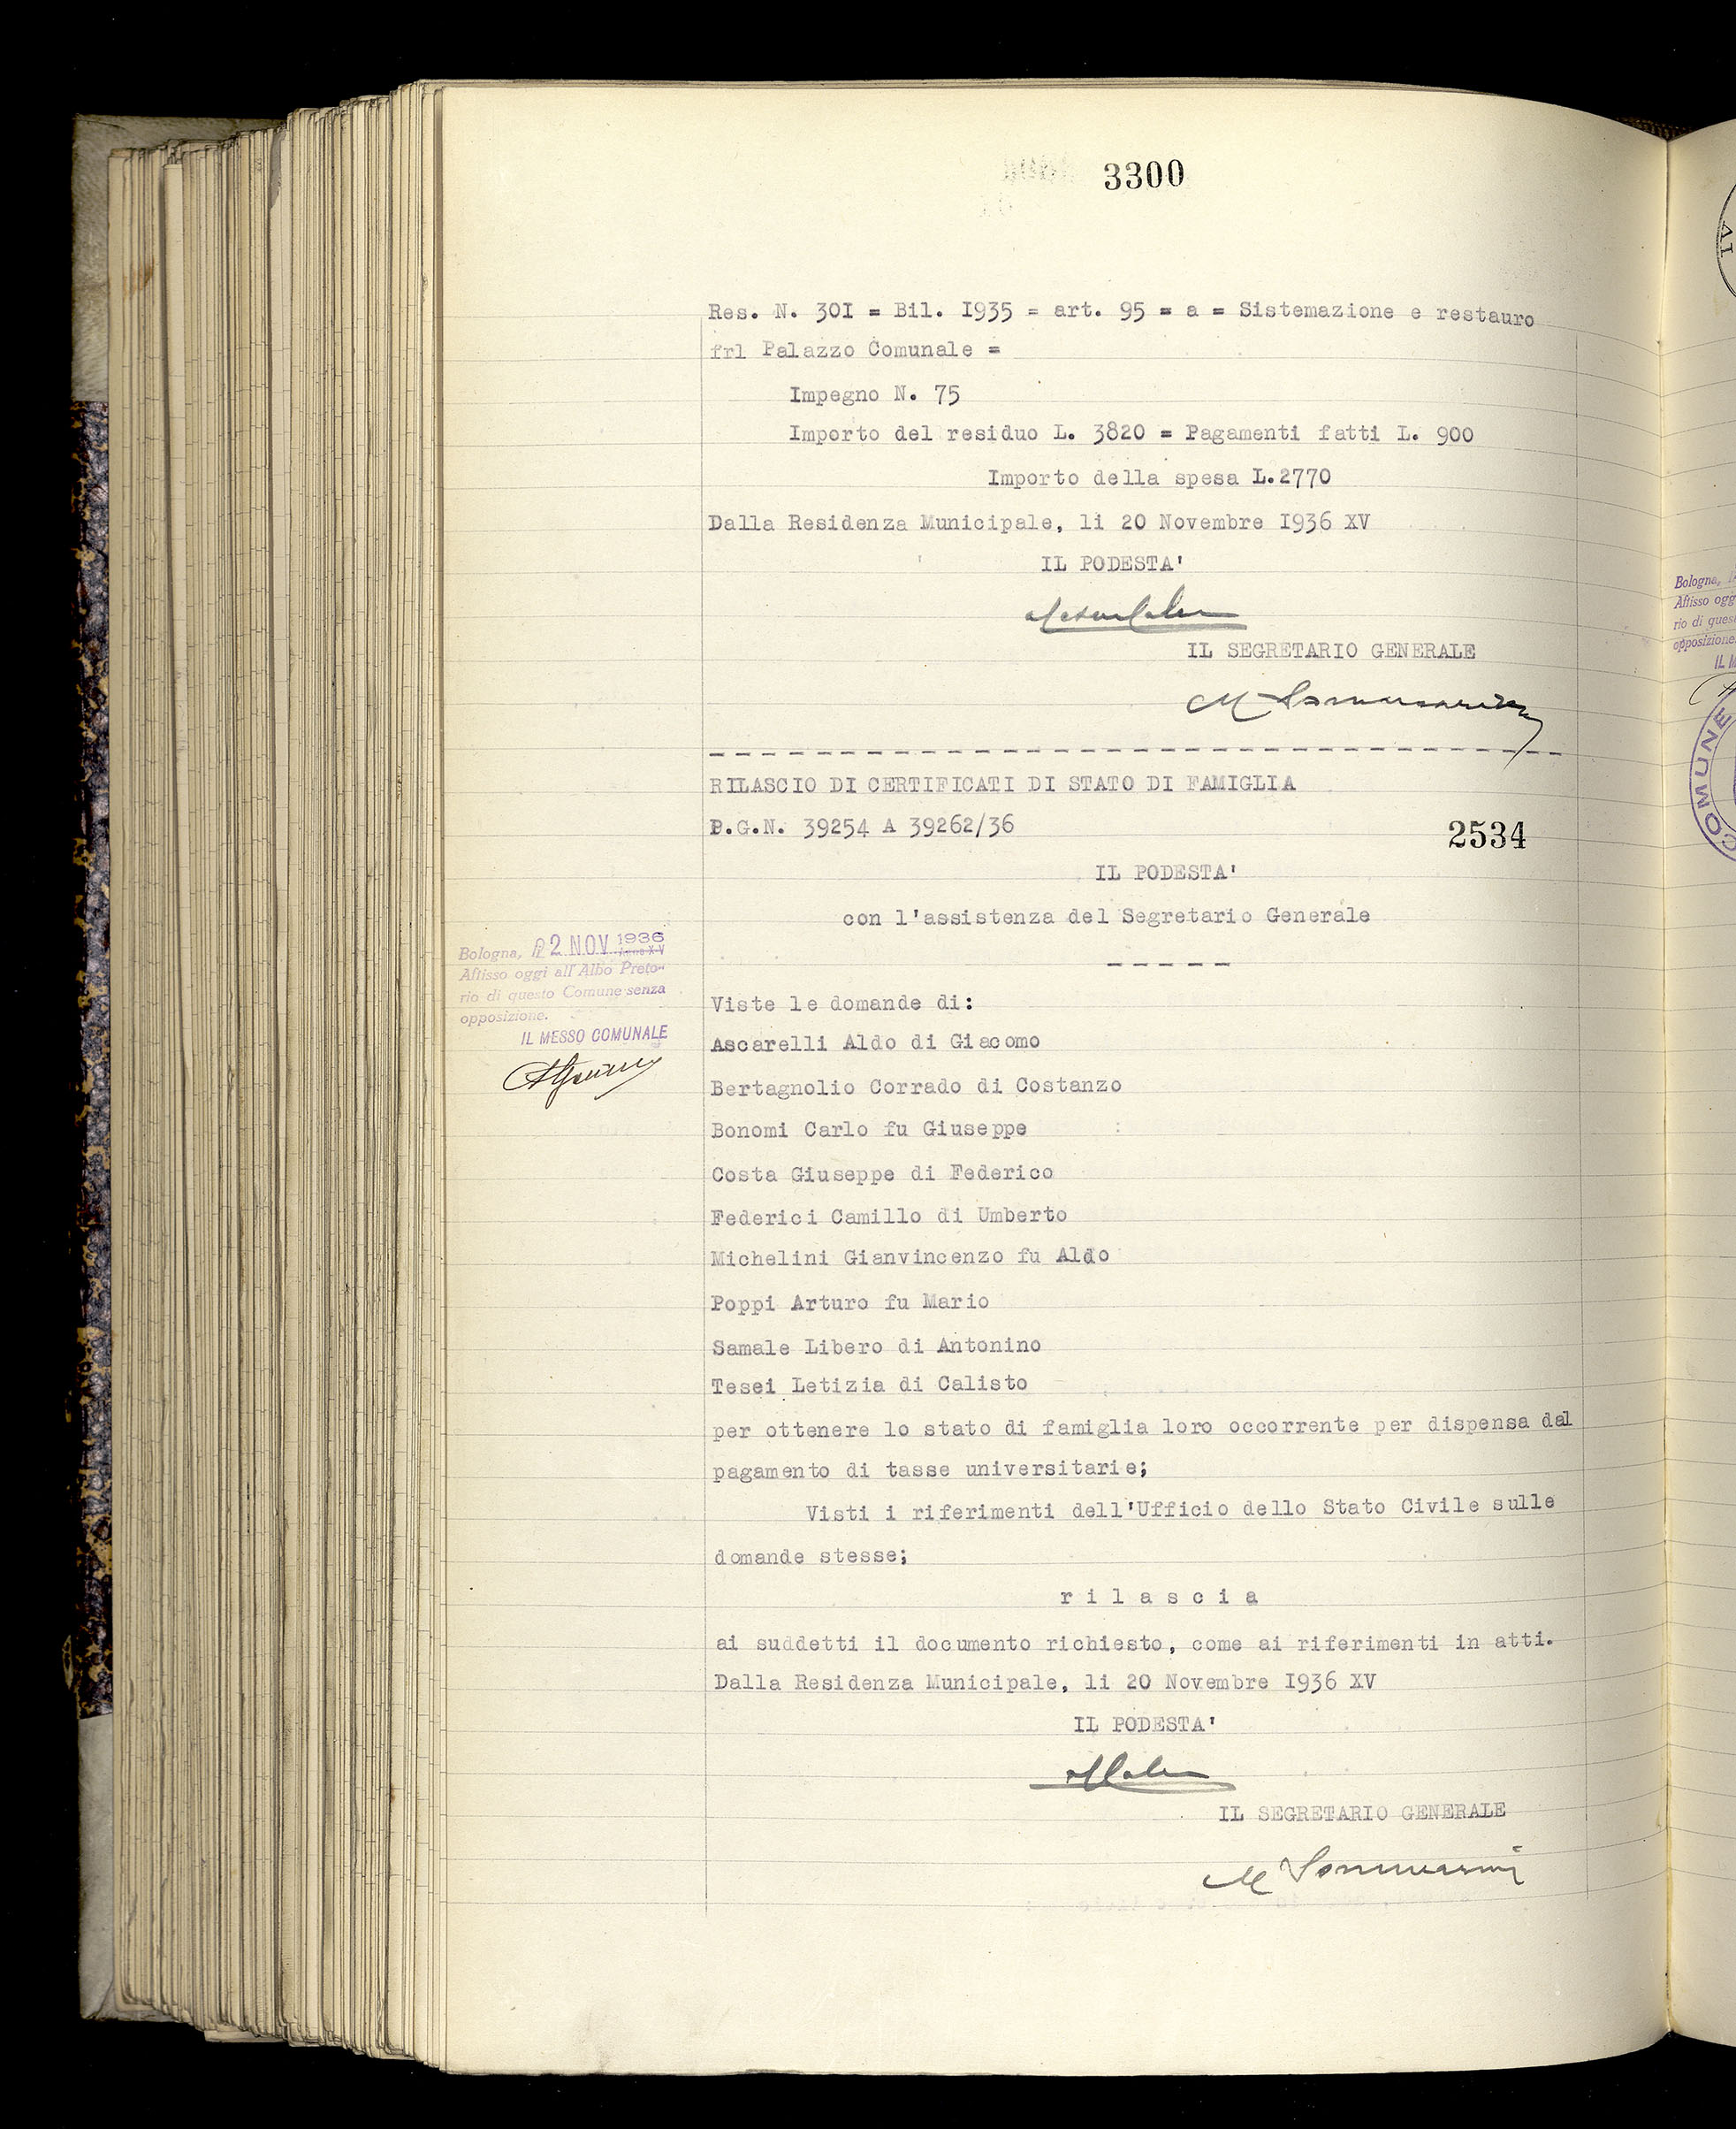 3300
Res. N. 30I = Bil. I935 = art. 95 = a = Sistemazione e restauro
frl Palazzo Comunale =
Impegno N. 75
Importo del residuo L. 3820 = Pagamenti fatti L. 900
Importo della spesa L.2770
Dalla Residenza Municipale, li 20 Novembre I936 XV
IL PODESTA'
IL SEGRETARIO GENERALE
M
RILASCIO DI CERTIFICATI DI STATO DI FAMIGLIA
P.G.N. 39254 A 39262/36
2534
IL PODESTA'
con l'assistenza del Segretario Generale
Bologna, 22 NOV 1936
Anno XV
Affisso oggi all'Albo Preto-
rio di questo Comune senza
opposizione.
IL MESSO COMUNALE
Viste le domande di:
Ascarelli Aldo di Giacomo
Bertagnolio Corrado di Costanzo
Bonomi Carlo fu Giuseppe
Costa Giuseppe di Federico
Federici Camillo di Umberto
Michelini Gianvincenzo fu Aldo
Poppi Arturo fu Mario
Samale Libero di Antonino
Tesei Letizia di Calisto
per ottenere lo stato di famiglia loro occorrente per dispensa dal
pagamento di tasse universitarie;
Visti i riferimenti dell'Ufficio dello Stato Civile sulle
domande stesse;
r i l a s c i a
ai suddetti il documento richiesto, come ai riferimenti in atti.
Dalla Residenza Municipale, li 20 Novembre I936 XV
IL PODESTA'
IL SEGRETARIO GENERALE
M
Bologna,
Affisso ogg
rio di ques
opposizione
IL M
COMUNE